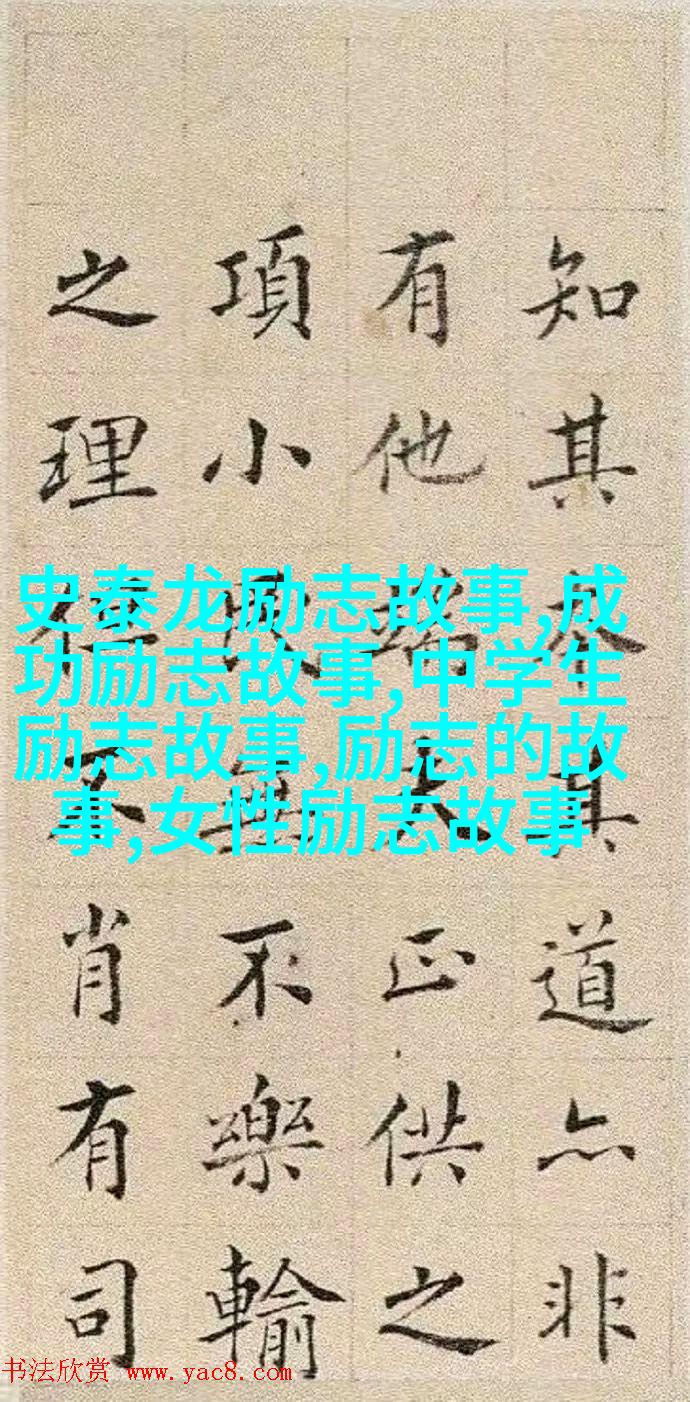 知其本其道亦非
有他端夫正供之
項小民無不樂輸
之理但不肖有司
史泰龙励志故事,成
功励志故事,中学生
励志故事,励志的故
事,女性励志故事
书法欣赏 www.yac8.com